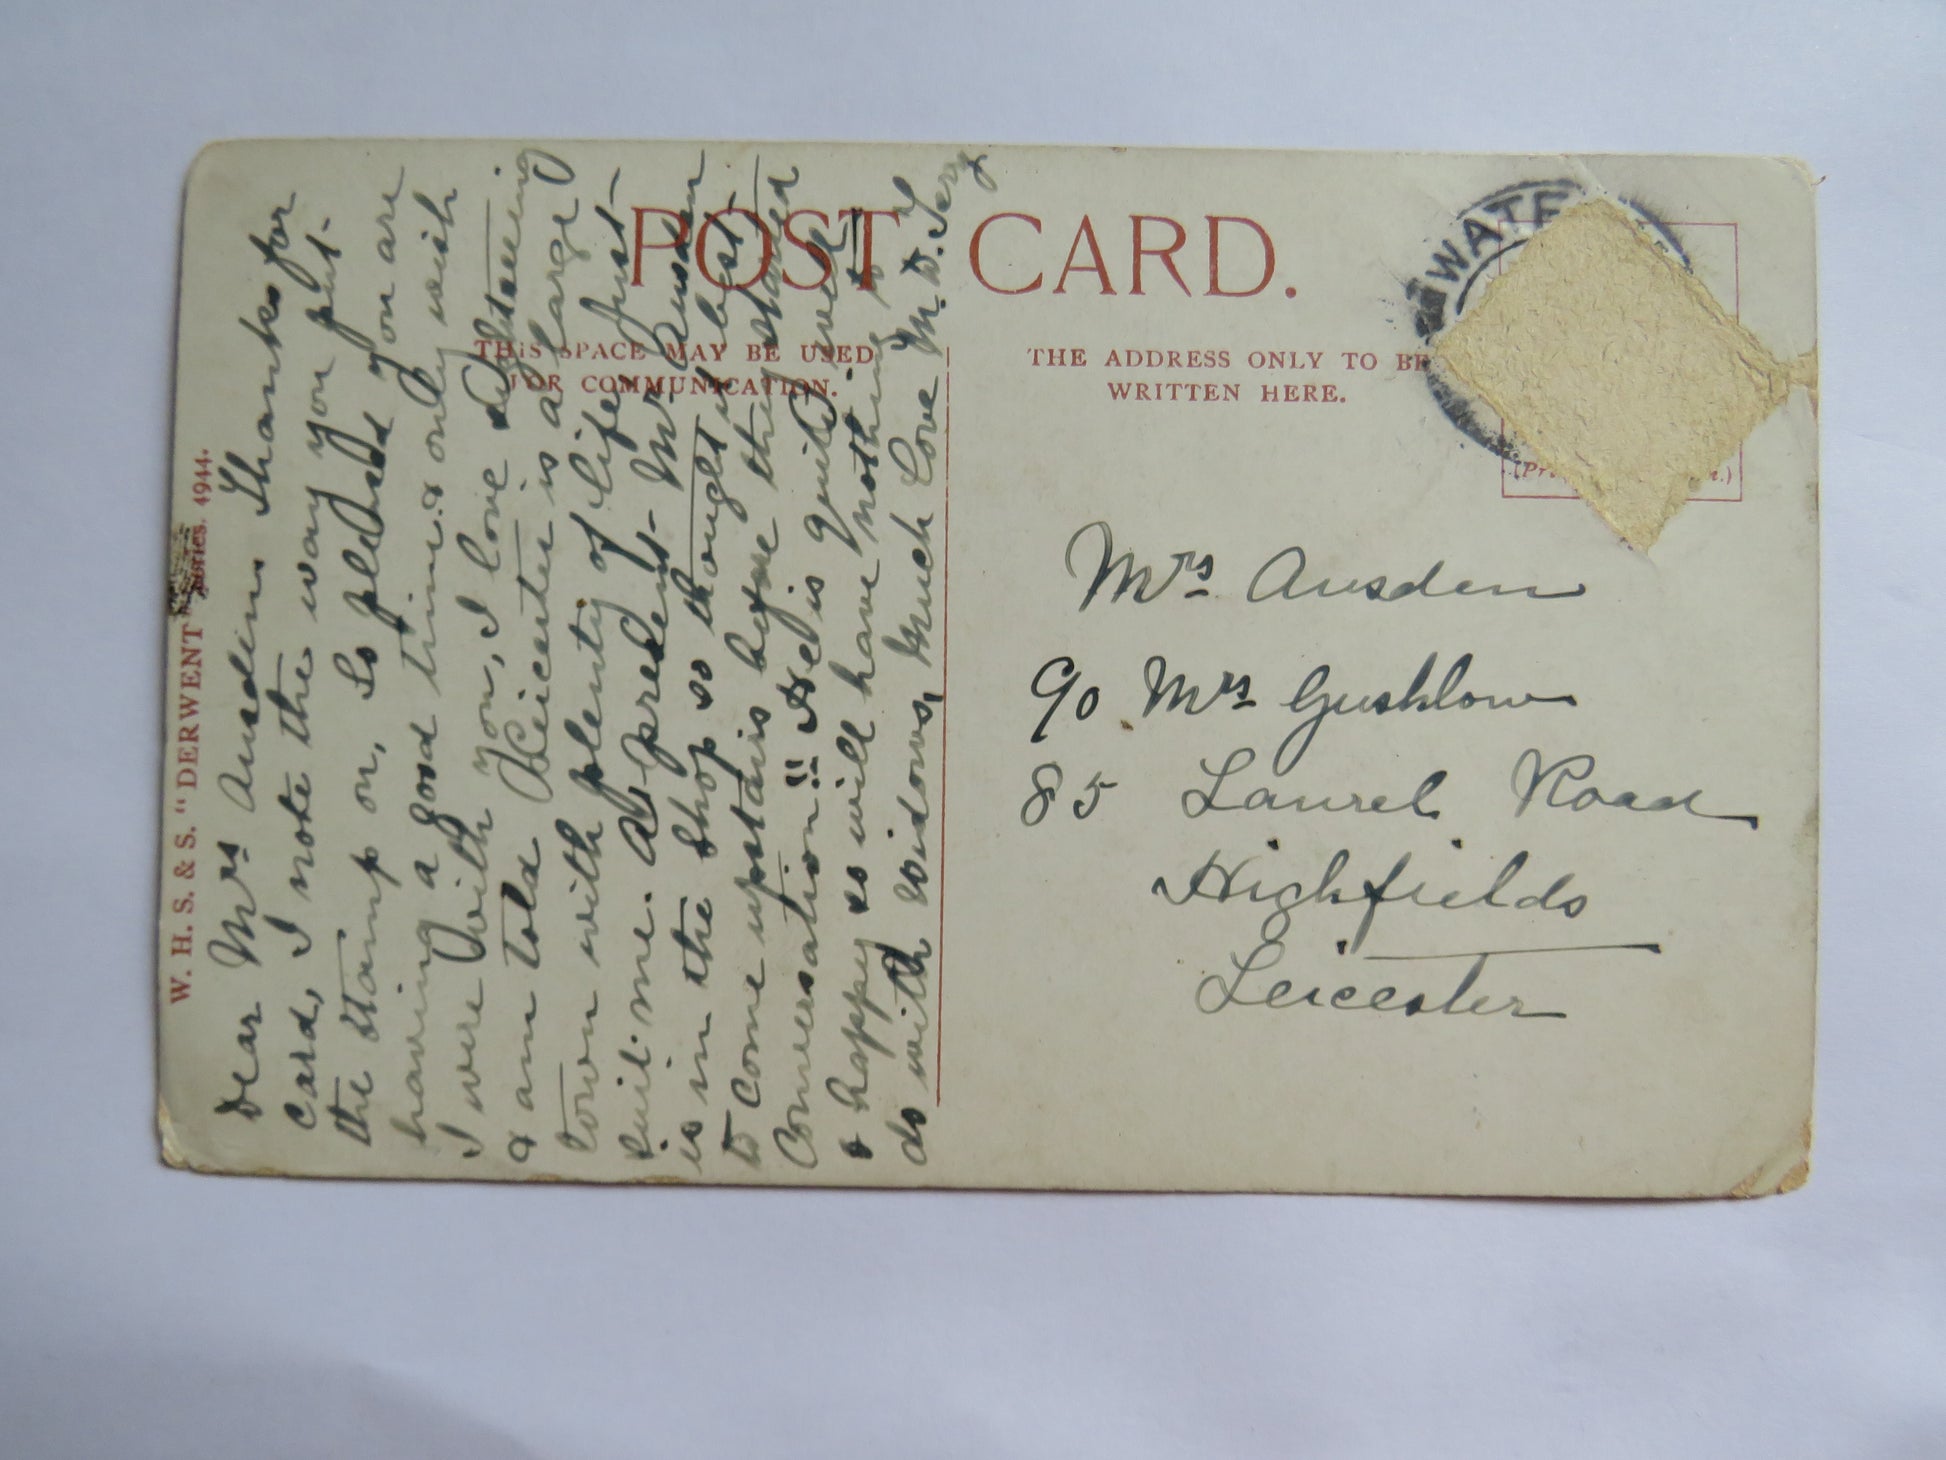 W. H. S. & S. "DERWENT" Series. 4944.
POST CARD.
THIS SPACE MAY BE USED
FOR COMMUNICATION.
THE ADDRESS ONLY TO BE
WRITTEN HERE.
WATE
Dear Mrs Ausden Thanks for
Card, I note the way you put
the stamp on, So pleased you are
having a good time & only wish
I were with you, I love
& am told Leicester is a large
town with plenty of life just
suit me. At present Mr Ausden
is in the Shop so thought it best
to come upstairs before they started
Conversation!! He is quite well
& happy so will have nothing to
do with widows, Much Love M. D.
Mrs Ausden
c/o Mrs Gushlow
85 Laurel Road
Highfields
Leicester